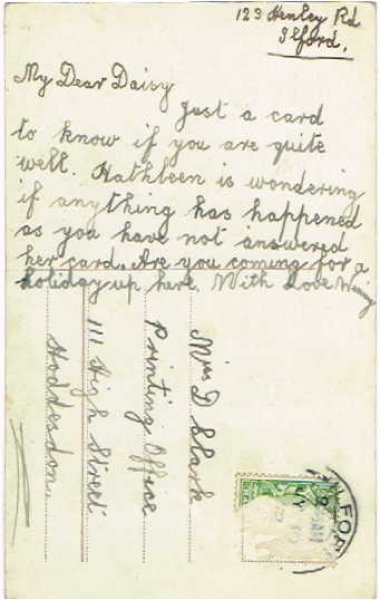 123 Henley Rd
Ilford.
My Dear Daisy
Just a card
to know if you are quite
well. Kathleen is wondering
if anything has happened
as you have not answered
her card. Are you coming for a
holiday up here. With Love
Miss D Slark
Printing Office
111 High Street
Hoddesdon.